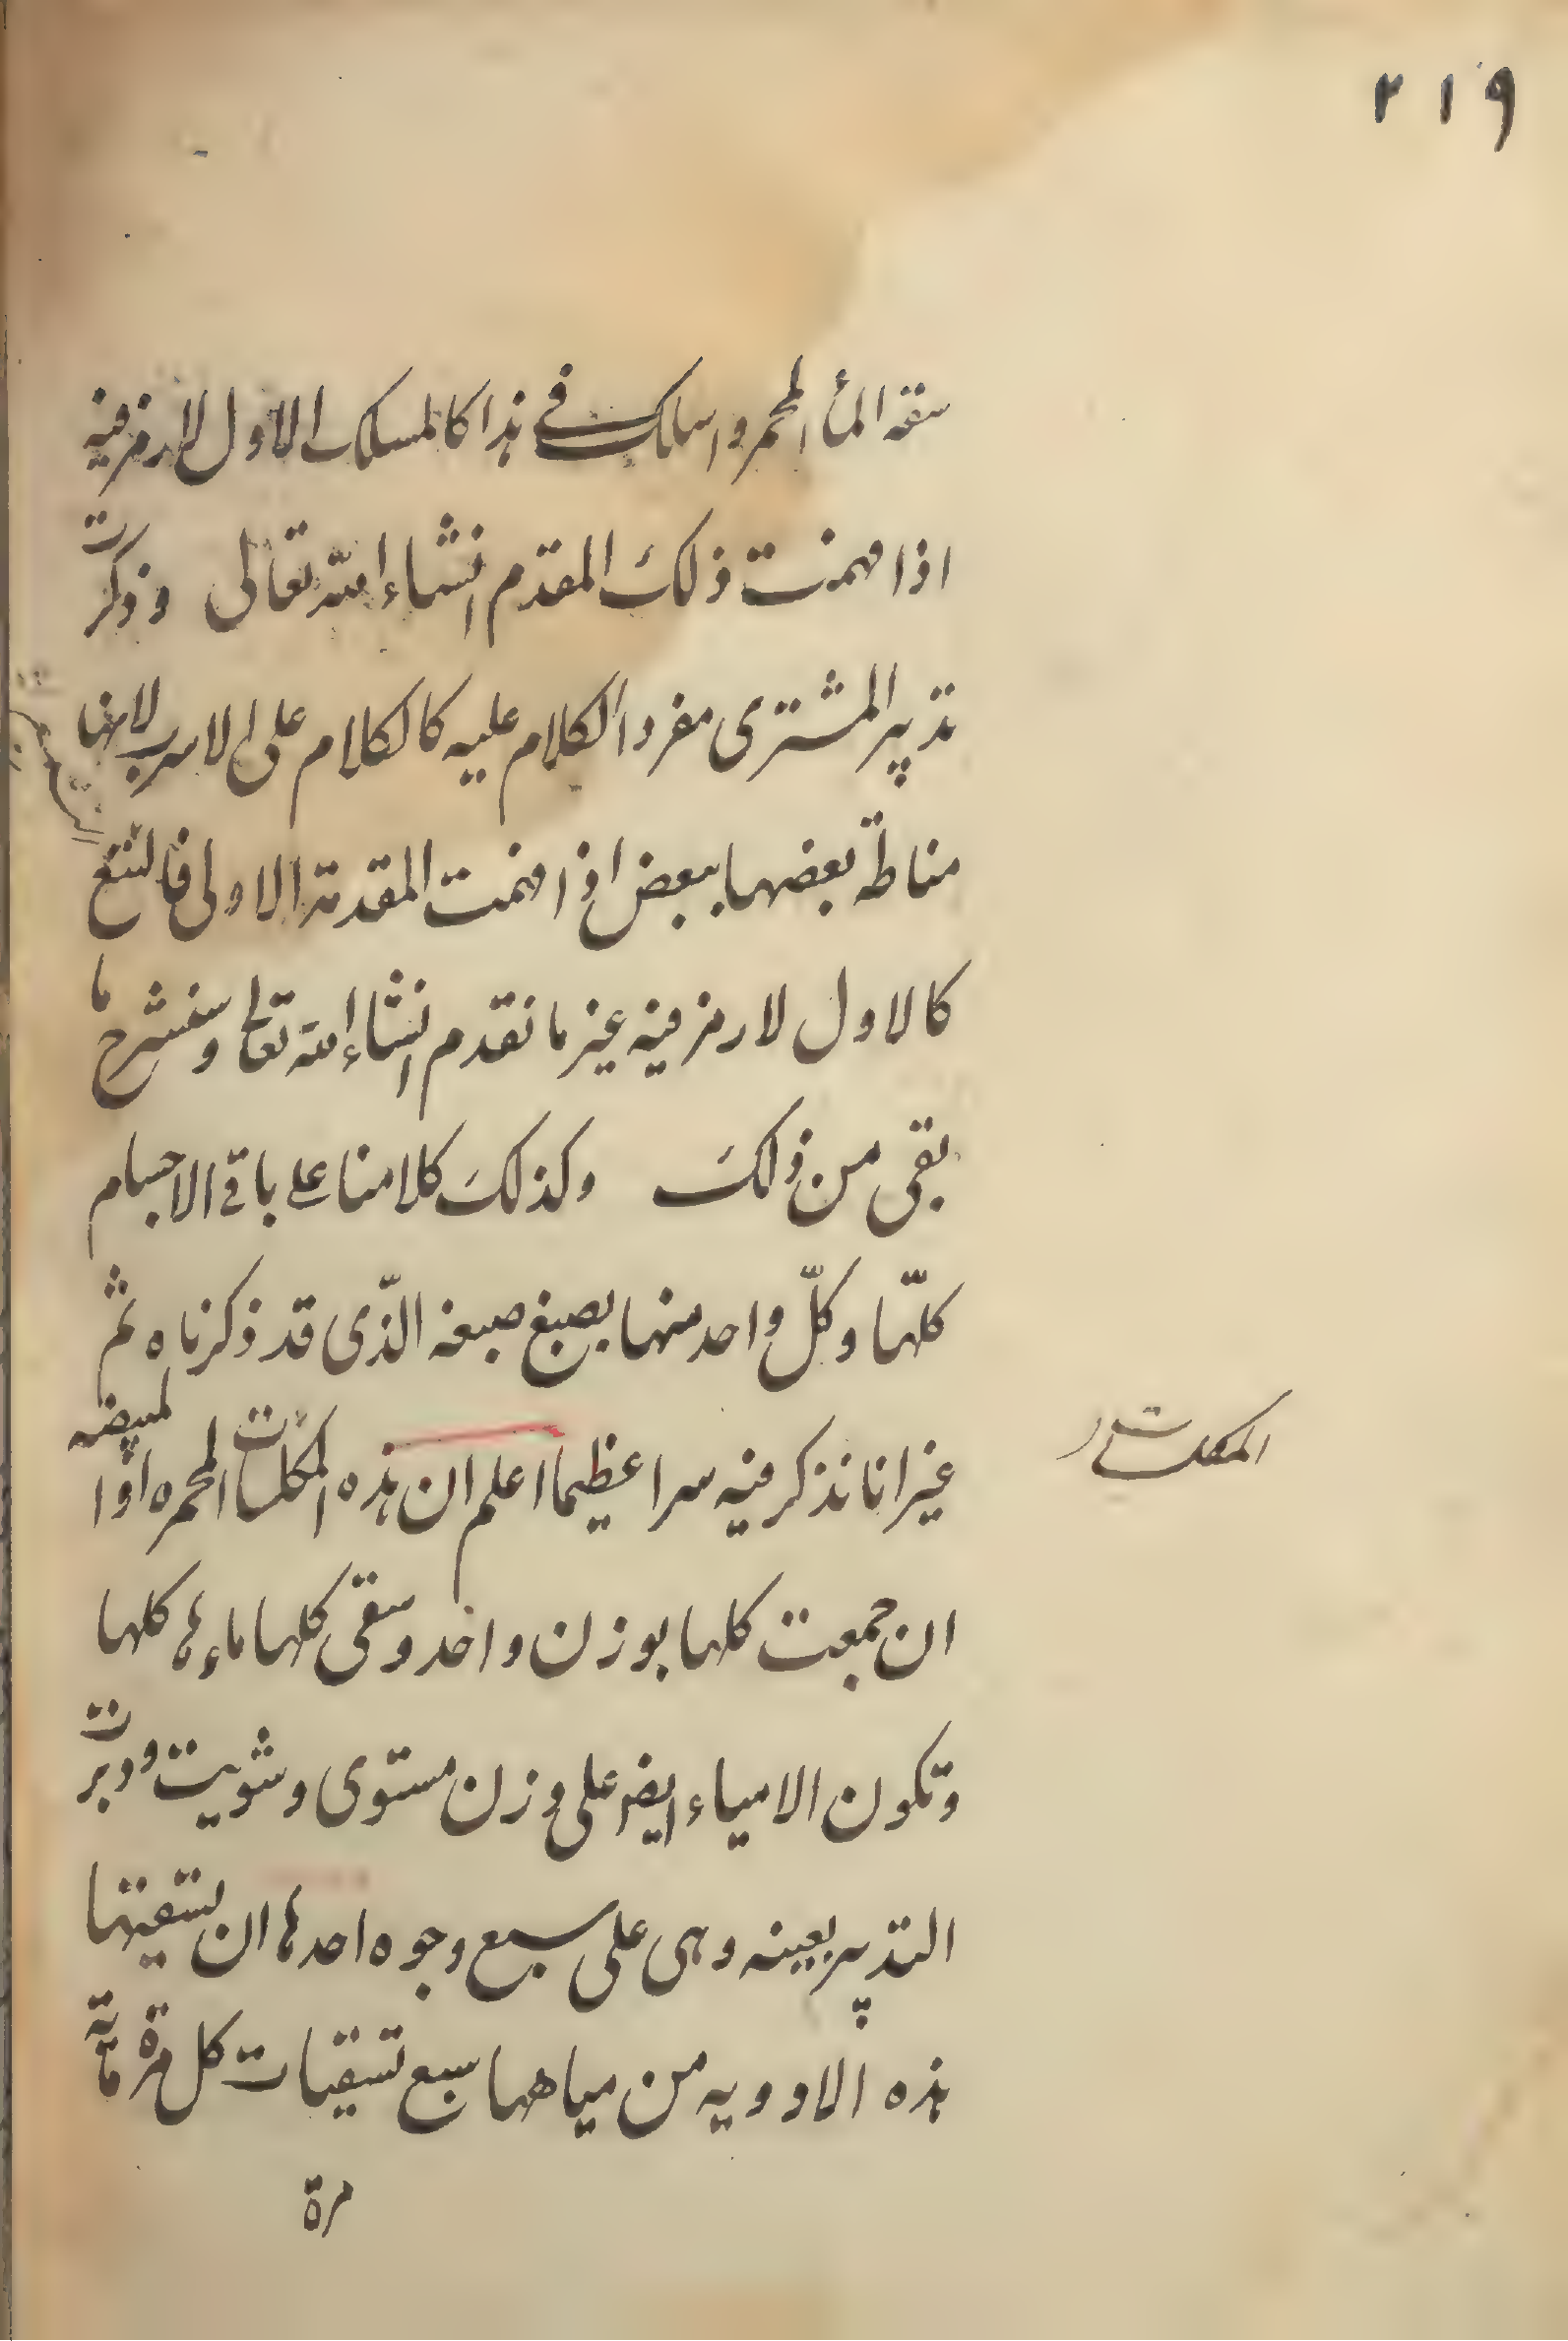 ٢١٩
سقه الماء المحمر واسلك في هذا كالمسلك الاول لا رمز فيه
اذا فهمت ذلك المقدم انشاء الله تعالى وذكرت
تدبير المشترى مفردا لكلام عليه كالكلام على الاسرب لانها
مناطة بعضها ببعض اذا فهمت المقدمة الاولى فالتنقع
كالاول لا رمز فيه غير ما تقدم انشاء الله تعالى وسنشرح ما
بقى من ذلك وكذلك كلامنا على باقى الاجسام
كلّها وكلّ واحد منها بصبغ صبغه الذّى قد ذكرناه ثم
غير انا نذكر فيه سرا عظيما اعلم ان هذه المكلسات المحمره او المبيضه
المكلسات
ان جمعت كلها بوزن واحد وسقى كلها ماءها كلها
وتكون الامياء ايضا على وزن مستوى وشويت ودبرت
التدبير بعينه وهى على سبع وجوه احدها ان تسقيتها
هذه الادويه من مياهها سبع تسقيات كل مرة ماية
مرة